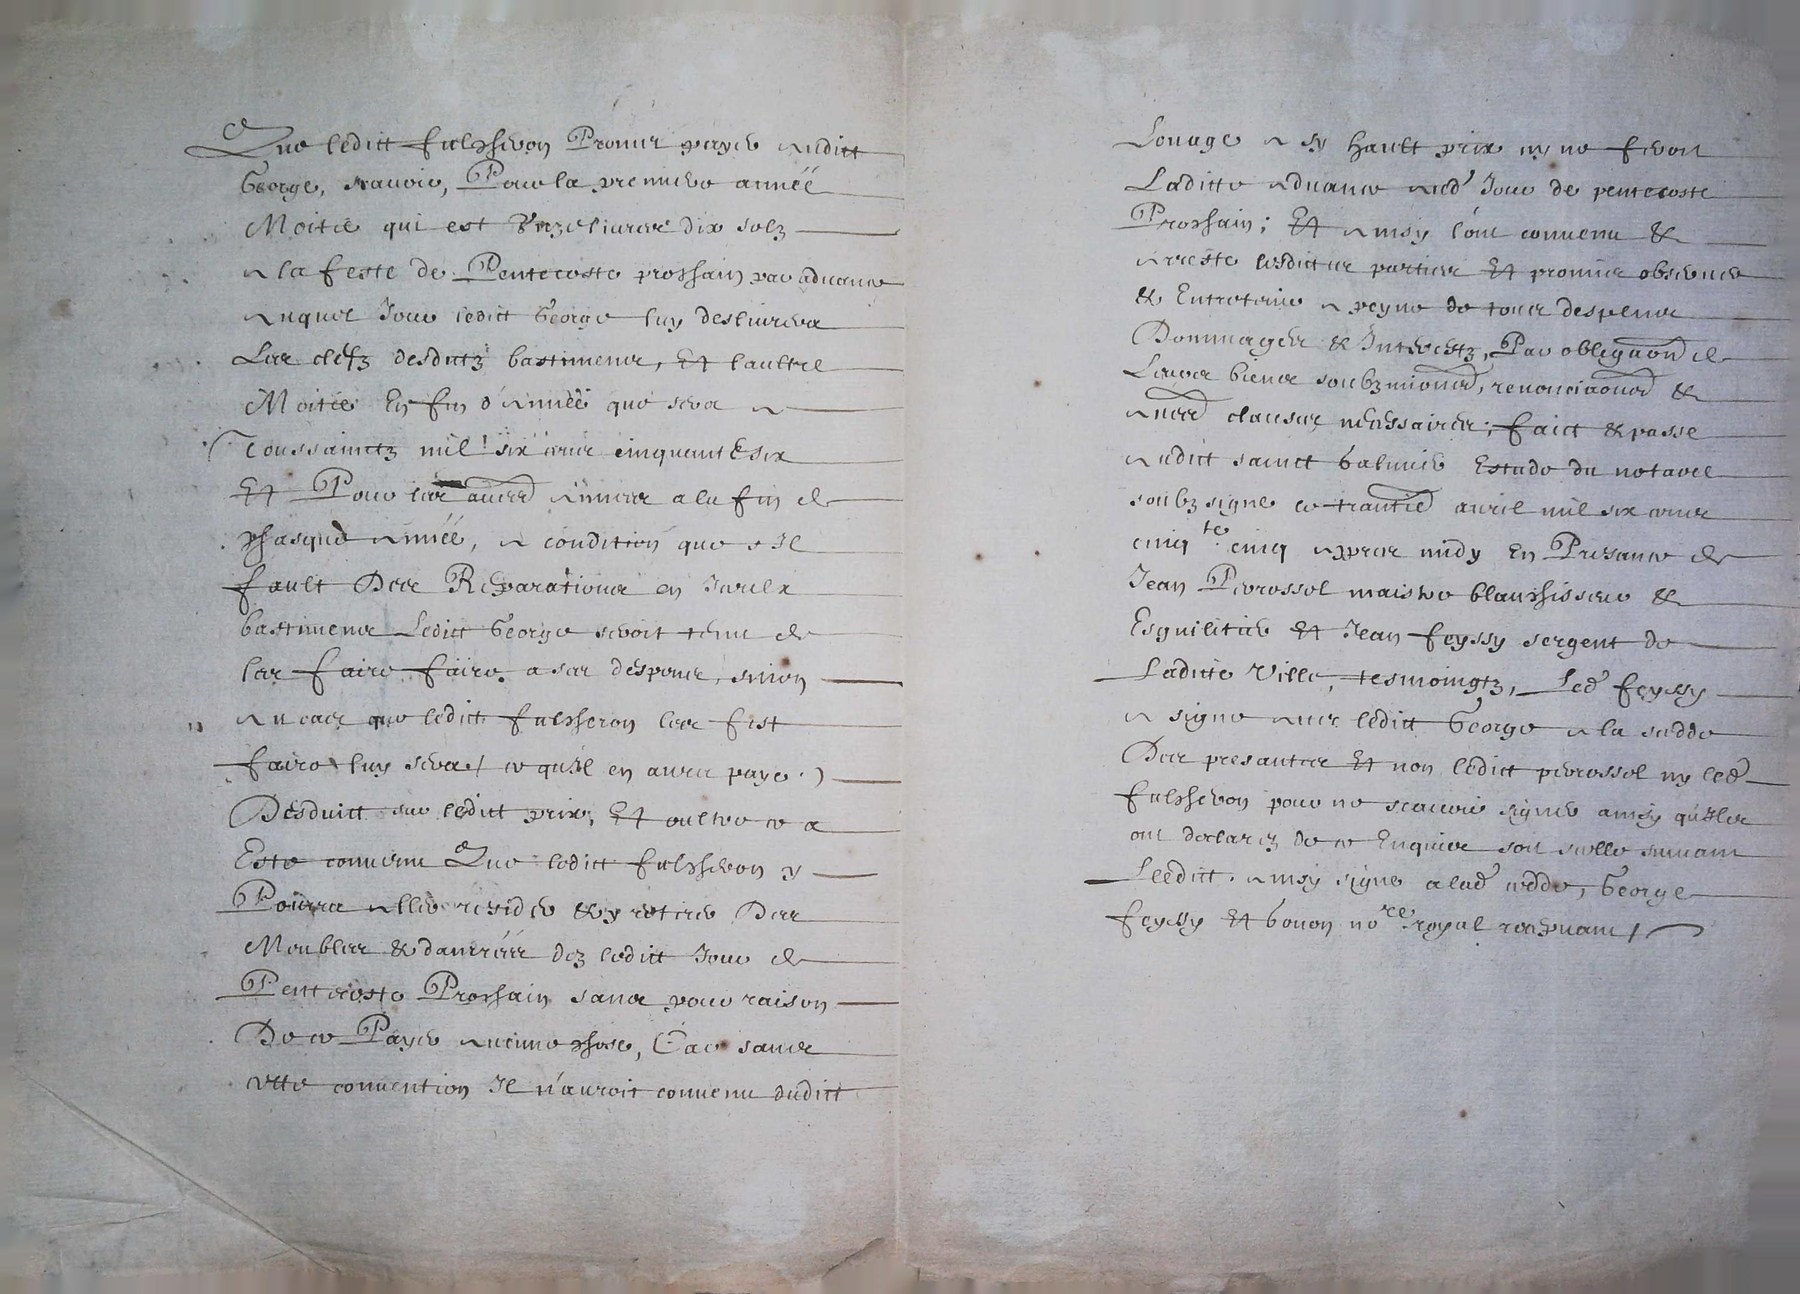 Que ledict fulcheron Promet payer audict
George, scauoir, Pour la premiere année
Moitié qui est Unze liures dix solz
a la feste de Pentecoste prochain par aduance
auquel Jour ledict George luy desliurera
Les clefz desdictz bastimens, Et l'aultre
Moitié En fin d'année que sera a
Toussainctz mil six cens cinquante six
Et Pour les aues années a la fin de
chasque année, a condition que s'Il
fault Des Reparations en Iceulx
bastimens Ledict George seroit tenu de
les faire faire a ses despens, sinon
au cas que ledict fulcheron les fist
faire luy sera ce qu'Il en aura payé
Desduict sur ledict prix, Et oultre ce a
Esté conuenu Que ledict fulcheron y
Pourra aller resider & y retirer Des
Meubles & danrées dez ledict Jour de
Pentecoste Prochain sans pour raison
De ce Payer aucune chose, Car sans
cette conuention Il n'auroit conuenu dudict
Louage a sy hault prix ny ne feroit
Laditte aduance aud Jour de pentecoste
Prochain; Et ainsy l'ont conuenu &
arresté lesdictes parties Et promis obseruer
& Entretenir a peyne de tous despens
Dommages & Interestz, Par obligaon de
Leurs biens soubzmions, renonciaons &
aues clauses necessaires; faict & passé
audict sainct Galmier Estude du notaire
soubzsigné ce trante auril mil six cens
cinqte cinq apres midy En Presance de
Jean Peyrossol maistre blanchisseur &
Esguilitier Et Jean feyssy sergent de
Laditte Ville, tesmoingtz, Led feyssy
a signé auec ledict George a la cedde
Des presantes Et non ledict peyrossol ny led
fulcheron pour ne scauoir signer ainsy qu'Ilz
ont declarez de ce Enquis soit scellé suiuant
Leedict. ainsy signé a lad cedde, George
feyssy Et bouon nore royal receuant